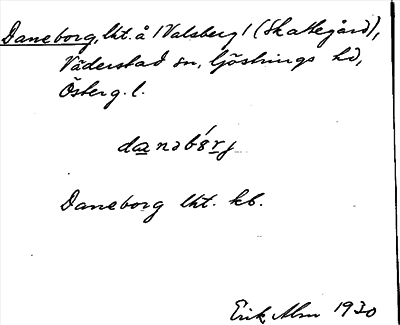 Daneborg, lht. å 1 Valsberg 1 (Skattegård),
Väderstad sn, Göstrings hd,
Österg. l.
danəbórj
Daneborg lht. kb.
Erik Alm 1930